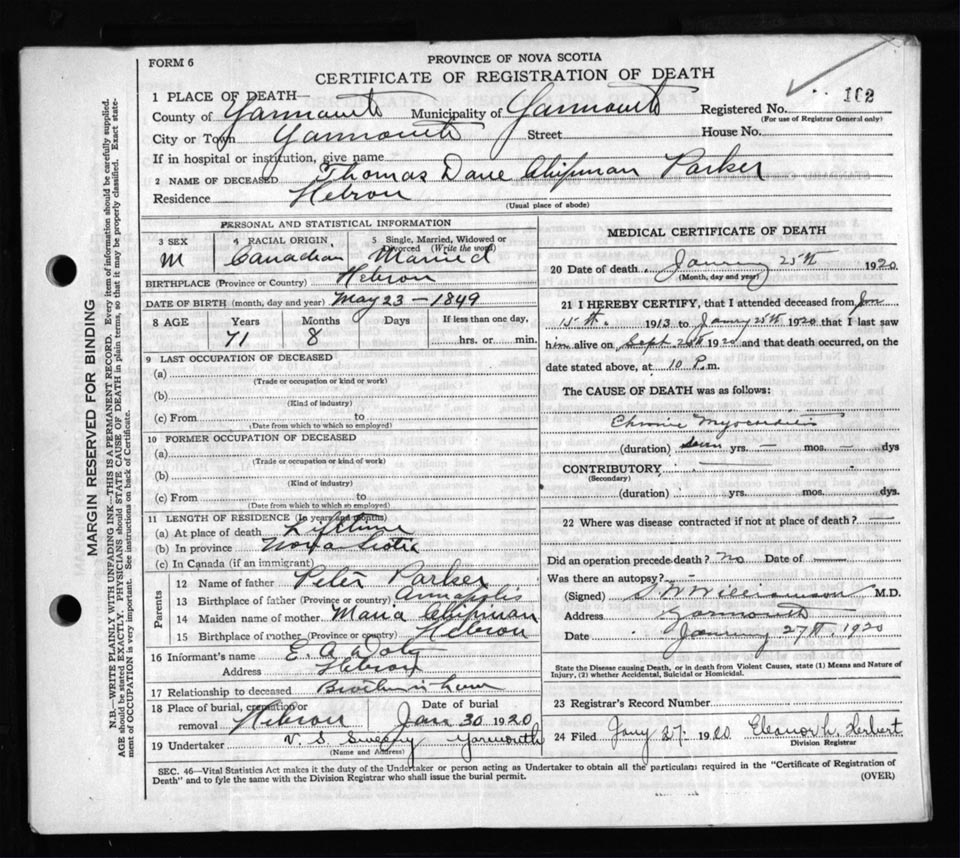 FORM 6
PROVINCE OF NOVA SCOTIA
CERTIFICATE OF REGISTRATION OF DEATH
1 PLACE OF DEATH—
County of Yarmouth Municipality of Yarmouth Registered No. 102
(For use of Registrar General only)
City or Town Yarmouth Street House No.
If in hospital or institution, give name
2 NAME OF DECEASED Thomas Dane Chipman Parker
Residence Hebron
(Usual place of abode)
MARGIN RESERVED FOR BINDING
N.B.—WRITE PLAINLY WITH UNFADING INK—THIS IS A PERMANENT RECORD. Every item of information should be carefully supplied.
AGE should be stated EXACTLY. PHYSICIANS should STATE CAUSE OF DEATH in plain terms, so that it may be properly classified. Exact state-
ment of OCCUPATION is very important. See instructions on back of Certificate.
PERSONAL AND STATISTICAL INFORMATION
3 SEX 4 RACIAL ORIGIN 5 Single, Married, Widowed or
Divorced (Write the word)
M Canadian Married
BIRTHPLACE (Province or Country) Hebron
DATE OF BIRTH (month, day and year) May 23 – 1849
8 AGE Years Months Days If less than one day,
71 8 hrs. or min.
9 LAST OCCUPATION OF DECEASED
(a)
(Trade or occupation or kind or work)
(b)
(Kind of industry)
(c) From to
(Date from which to which so employed)
10 FORMER OCCUPATION OF DECEASED
(a)
(Trade or occupation or kind of work)
(b)
(Kind of industry)
(c) From to
(Date from which to which so employed)
11 LENGTH OF RESIDENCE (In years and months)
(a) At place of death Lifetime
(b) In province Nova Scotia
(c) In Canada (if an immigrant)
Parents
12 Name of father Peter Parker
13 Birthplace of father (Province or country) Annapolis
14 Maiden name of mother Maria Chipman
15 Birthplace of mother (Province or Country) Hebron
16 Informant's name E. A. Doty
Address Hebron
17 Relationship to deceased Brother in law
18 Place of burial, cremation or Date of burial
removal Hebron Jan 30 1920
19 Undertaker V. S. Sweeny Yarmouth
(Name and Address)
MEDICAL CERTIFICATE OF DEATH
20 Date of death January 25th 1920
(Month, day and year)
21 I HEREBY CERTIFY, that I attended deceased from Jan
15th. 1913 to Jany 25th 1920 that I last saw
him alive on Sept. 1920 and that death occurred, on the
date stated above, at 10 P.m.
The CAUSE OF DEATH was as follows:
Chronic Myocarditis
(duration) yrs. — mos. — dys
CONTRIBUTORY —
(Secondary)
(duration) yrs. mos. dys.
22 Where was disease contracted if not at place of death? —
Did an operation precede death? no Date of —
Was there an autopsy? —
(Signed) S. W. Williamson M.D.
Address Yarmouth
Date January 27th 1920
State the Disease causing Death, or in death from Violent Causes, state (1) Means and Nature of
Injury, (2) whether Accidental, Suicidal or Homicidal.
23 Registrar's Record Number
24 Filed Jany 27 1920 Eleanor L. Herbert
Division Registrar
SEC. 46—Vital Statistics Act makes it the duty of the Undertaker or person acting as Undertaker to obtain all the particulars required in the "Certificate of Registration of
Death" and to fyle the same with the Division Registrar who shall issue the burial permit. (OVER)